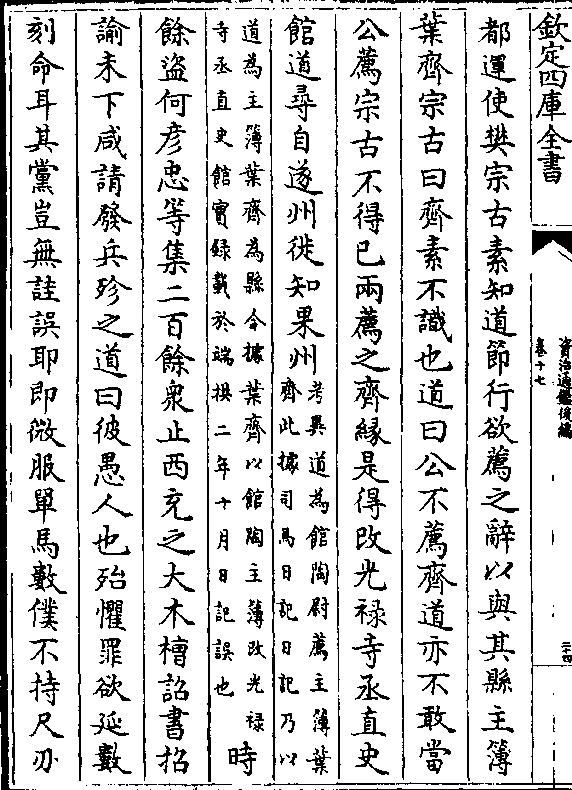 欽定四庫全書
資治通鑑後編
卷十七
二十四
都運使樊宗古素知道節行欲薦之辭以與其縣主簿
葉齊宗古曰齊素不識也道曰公不薦齊道亦不敢當
公薦宗古不得已兩薦之齊縁是得改光禄寺丞直史
館道尋自遂州徙知果州
考異道為館陶尉薦主簿葉
齊此據司馬日記日記乃以
道為主簿葉齊為縣令據葉齊以館陶主薄改光禄
寺丞直史館實録載於端拱二年十月日記誤也
時
餘盗何彦忠等集二百餘衆止西充之大木槽詔書招
諭未下咸請發兵殄之道曰彼愚人也殆懼罪欲延數
刻命耳其黨豈無詿誤耶即微服單馬數僕不持尺刃